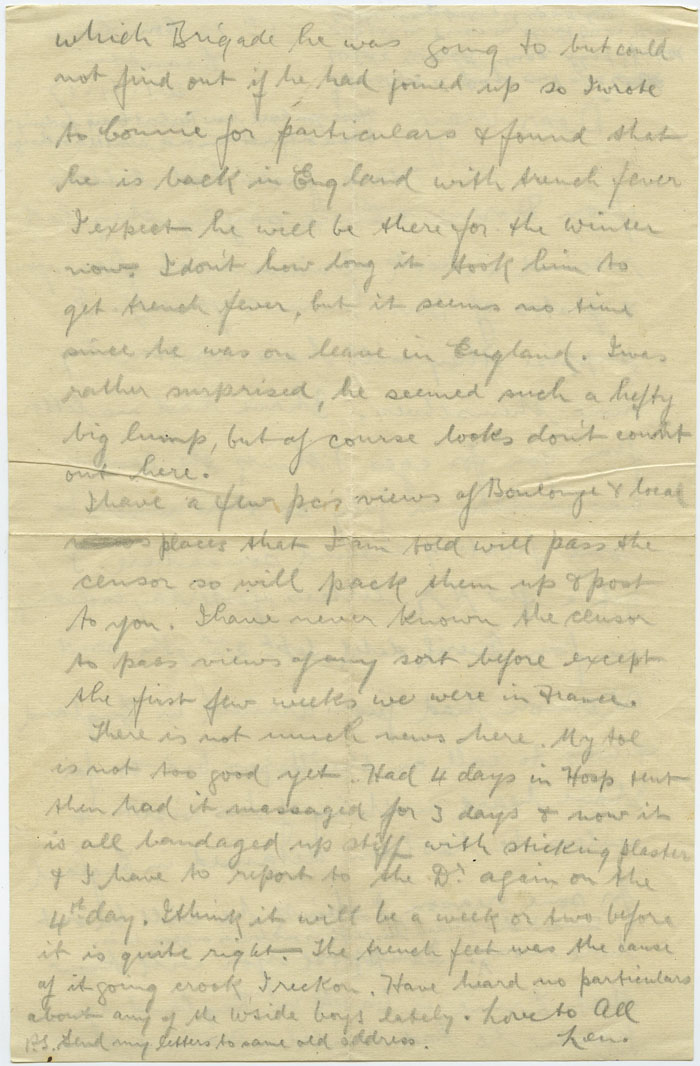 which Brigade he was going to but could
not find out if he had joined up so I wrote
to Connie for particulars & found that
he is back in England with trench fever
I expect he will be there for the winter
now. I don't how long it took him to
get trench fever, but it seems no time
since he was on leave in England. I was
rather surprised, he seemed such a hefty
big lump, but of course looks don't count
out here.
I have a few pcs views of Boulonge & local
places that I am told will pass the
censor so will pack them up & post
to you. I have never known the censor
to pass views of any sort before except
the first few weeks we were in France.
There is not much news here. My toe
is not too good yet. Had 4 days in Hosp tent
then had it massaged for 3 days & now it
is all bandaged up stiff with sticking plaster
& I have to report to the Dr. again on the
4th day. I think it will be a week or two before
it is quite right. The trench feet was the cause
of it going crook, I reckon. Have heard no particulars
about any of the boys lately. Love to All
P.S. Send my letters to same old address. Len.